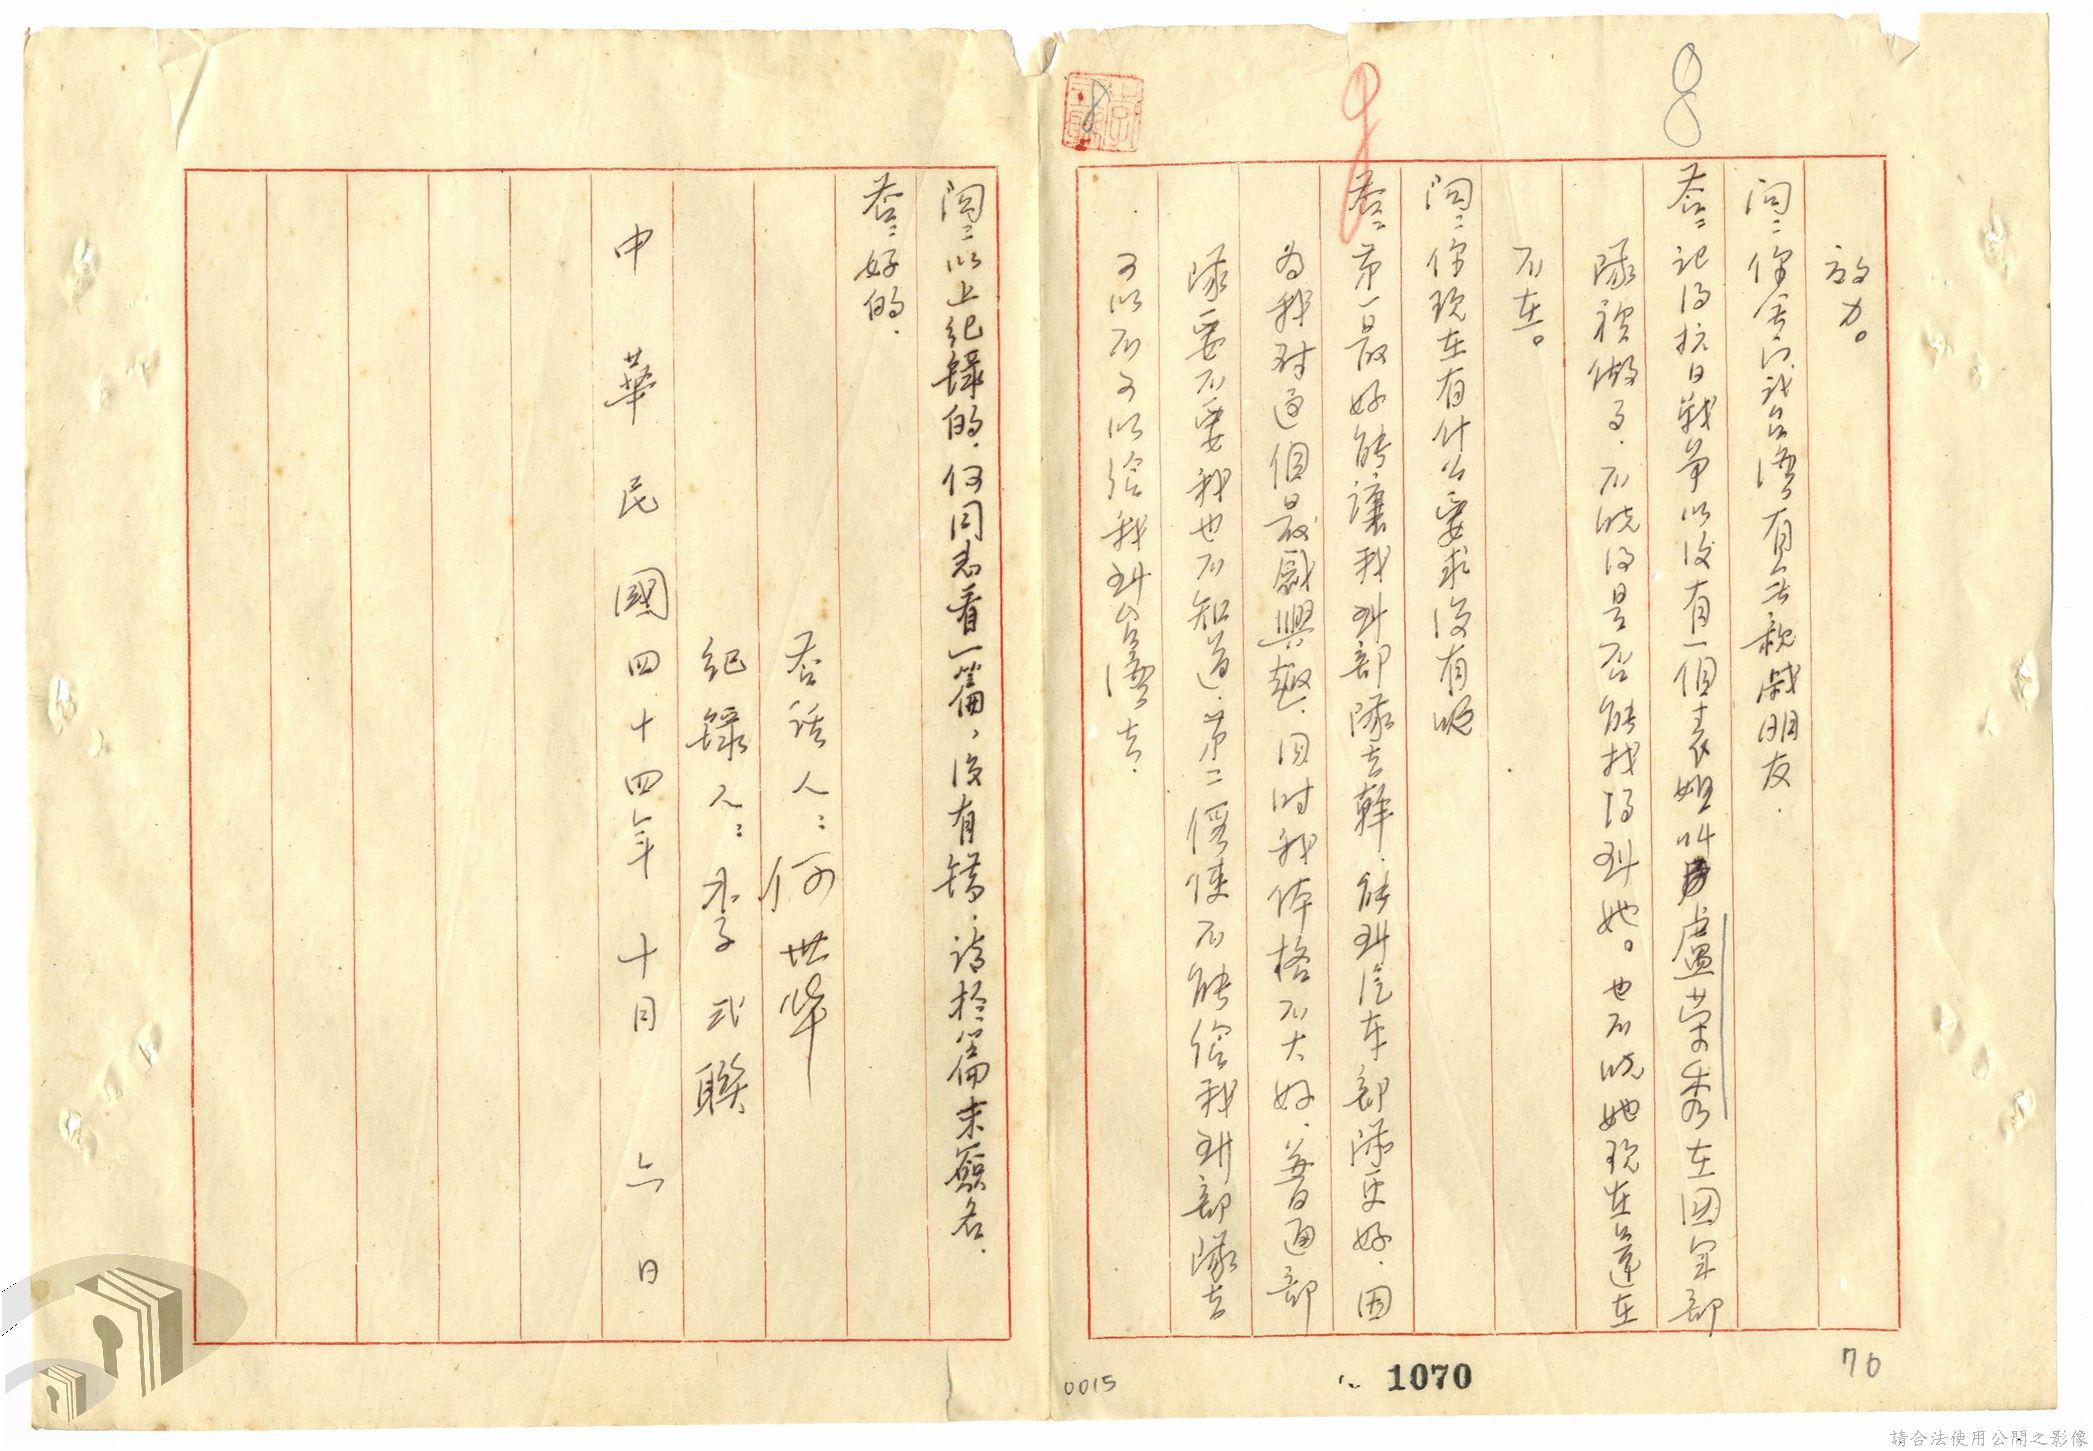 效力。
問：你舍：以我台灣有些什親戚朋友.
答：記得抗日戰争以後有一個表姐叫盧荣秀在國军部
隊裡做事.不晓得是否能找得到她。也不晓她现在還在
不在。
問：你现在有什么要求没有呢
答：第一最好能讓我到部隊去幹.能到汽车部隊更好.因
為我对這個最感興趣.同时我体格不大好.普通部
隊要不要我也不知道.第二假使不能给我到部隊去
可以不可以给我到台灣去.
問：以上纪録的.何同志看一篇,没有错.請於篇末簽名.
答：好的.
答话人：何世华
纪録人：李武聯
中華民國四十四年十月六日
8
9
8
70
0015
1070
請合法使用公開之影像